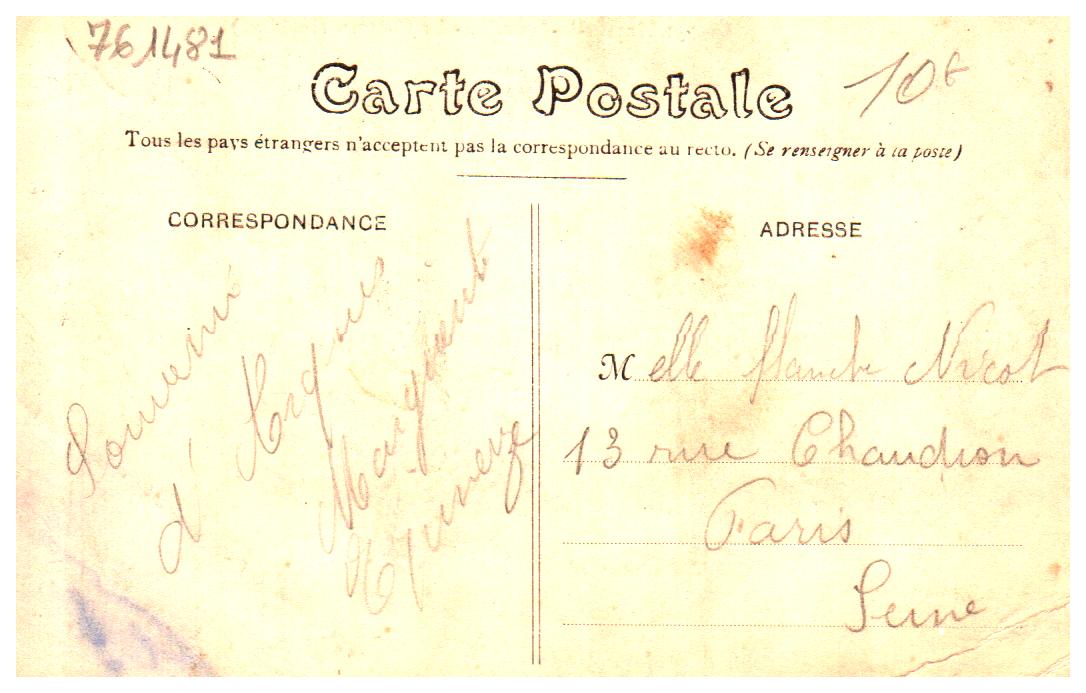 761481
10€
Carte Postale
Tous les pays étrangers n'acceptent pas la correspondance au recto. (Se renseigner à la poste)
CORRESPONDANCE
Souvenir
d'
Marguerite
ADRESSE
Melle Blanche Nicot
13 rue Chaudron
Paris
Seine